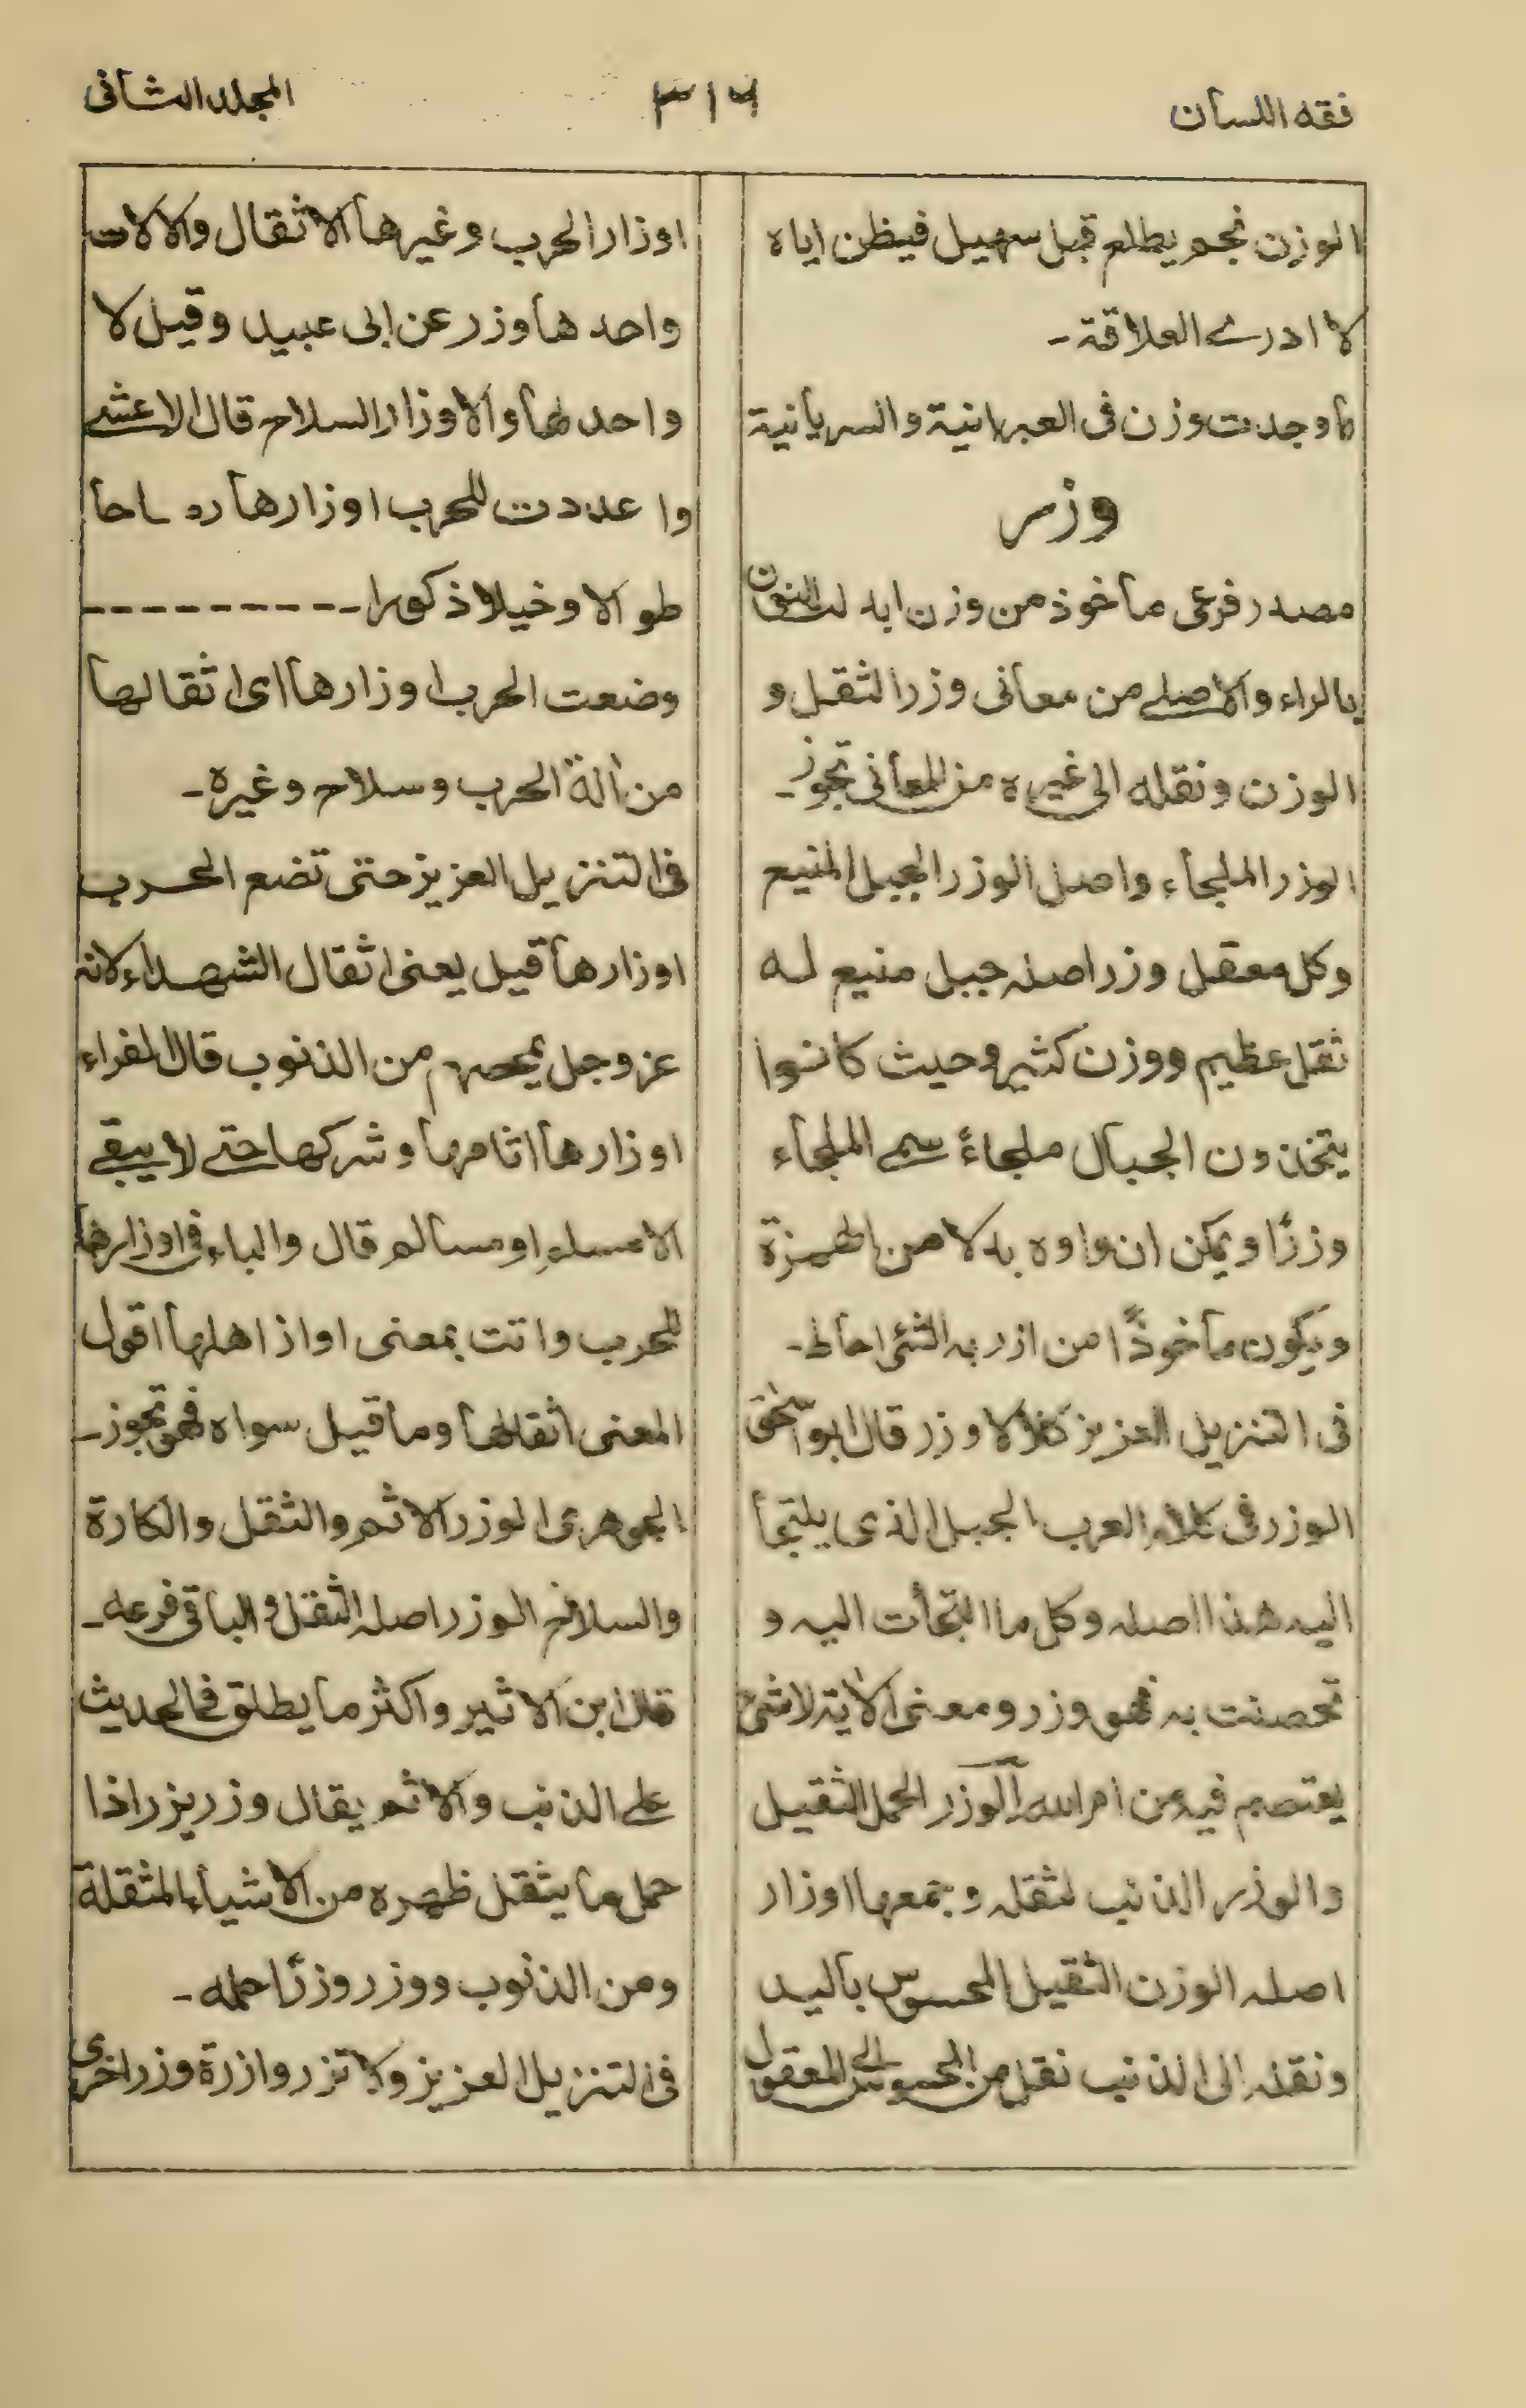 فقه اللسان
٣١٤
المجلد الثانى
الوزن نجم يطلع قبل سهيل فيظن اياه
لا ادرے العلاقة -
ما وجدت وزن فى العبرانية والسريانية
وزر
مصدر فرعى ماخوذ من وزن ابدلت النون
بالراء والاصلے من معانى وزر الثقل و
الوزن ونقله الى غيره من المعانى تجوز -
الوزر الملجاء واصل الوزر الجبل المنيع
وكل معقل وزر اصله جبل منيع له
ثقل عظيم ووزن كثير وحيث كانوا
يتخذون الجبال ملجاءً سمے الملجاء
وزرًا ويمكن ان واوه بدلا من الهمزة
ويكون ماخوذًا من ازر به الشئ احاط -
فى التنزيل العزيز كلا لا وزر قال ابو اسحٰق
الوزر فى كلام العرب الجبل الذى يلتجأ
اليه هذا اصله وكل ما التجأت اليه و
تحصنت به فهو وزر ومعنى الآية لا شئ
يعتصم فيه من امر الله الوزر الحمل الثقيل
والوزر الذنب لثقله وجمعها اوزار
اصله الوزن الثقيل المحسوس باليد
ونقله الى الذنب نقل من المحسوس الى المعقول
اوزار الحرب وغيرها الاثقال والالات
واحدها وزر عن ابى عبيد وقيل لا
واحد لها والاوزار السلاح قال الاعشے
واعددت للحرب اوزارها رماحا
طوالا وخيلا ذكورا ----------
وضعت الحرب اوزارها اى اثقالها
من آلة الحرب وسلاح وغيره -
فى التنزيل العزيز حتى تضع الحرب
اوزارها قيل يعنى اثقال الشهداء لانه
عز وجل يمحصهم من الذنوب قال الفراء
اوزارها اثامها وشركها حتے لا يبقے
الا مسلم او مسالم قال والهاء فى اوزارها
للحرب واتت بمعنى اوزار اهلها اقول
المعنى اثقالها وما قيل سواه فهو تجوز -
الجوهرى الوزر الاثم والثقل والكارة
والسلاح الوزر اصله الثقل والباقى فرعه -
قال ابن الاثير واكثر ما يطلق فى الحديث
علے الذنب والاثم يقال وزر يزر اذا
حمل ما يثقل ظهره من الاشياء المثقلة
ومن الذنوب ووزر وزرًا حمله -
فى التنزيل العزيز ولا تزر وازرة وزر اخرى